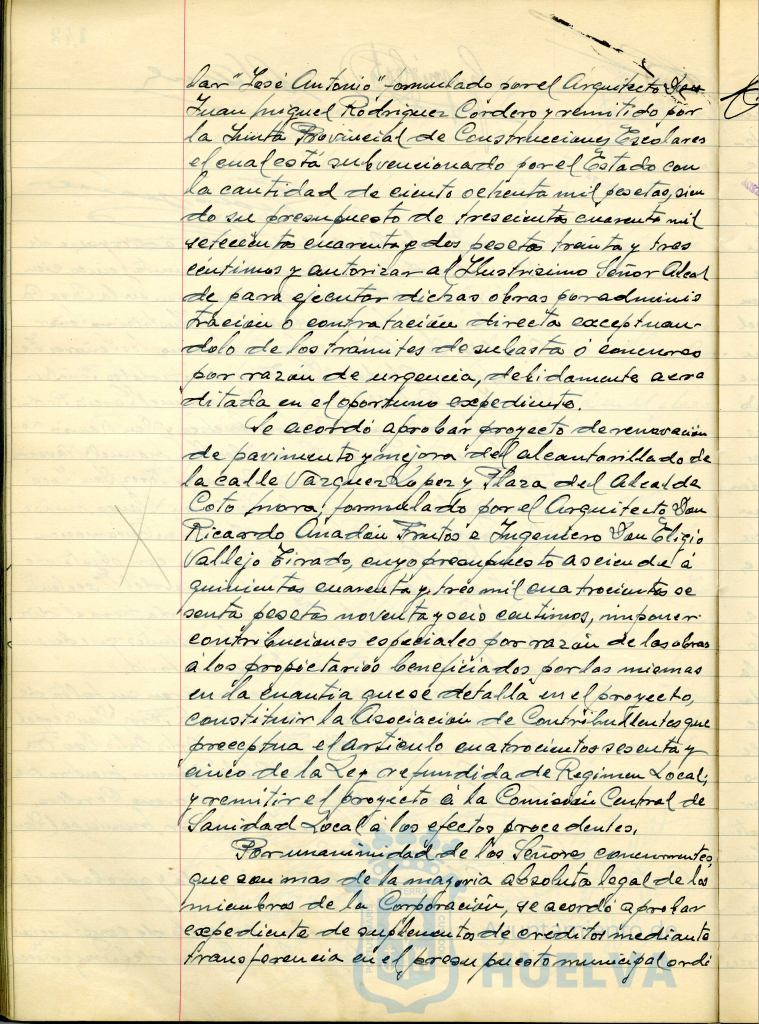 lar "José Antonio" formulado por el Arquitecto Don
Juan Miguel Rodriguez Cordero y remitido por
la Junta Provincial de Construcciones Escolares
el cual está subvencionado por el Estado con
la cantidad de ciento ochenta mil pesetas, sien
do su presupuesto de trescientas cuarenta mil
setecientas cuarenta y dos pesetas treinta y tres
céntimos y autorizar al Ilustrisimo Señor Alcal
de para ejecutar dichas obras por adminis
tración o contratación directa exceptuan-
dolo de los trámites de subasta ó concurso
por razón de urgencia, debidamente acre
ditada en el oportuno expediente.
Se acordó aprobar proyecto de renovación
de pavimento y mejora del alcantarillado de
la calle Vazquez Lopez y Plaza del Alcalde
Coto Mora, formulado por el Arquitecto Don
Ricardo Anadón Frutos e Ingeniero Don Eligio
Vallejo Tirado, cuyo presupuesto asciende á
quinientas cuarenta y tres mil cuatrocientas se
senta pesetas noventa y seis centimos, imponer
contribuciones especiales por razón de las obras
á los propietarios beneficiados por las mismas
en la cuantia que se detalla en el proyecto,
constituir la Asociación de Contribuyentes que
preceptua el artículo cuatrocientos sesenta y
cinco de la Ley refundida de Regimen Local;
y remitir el proyecto á la Comisión Central de
Sanidad Local á los efectos procedentes.
Por unanimidad de los Señores concurrentes,
que son mas de la mayoria absoluta legal de los
miembros de la Corporación, se acordó aprobar
expediente de suplementos de créditos mediante
transferencia en el presupuesto municipal ordi
HUELVA